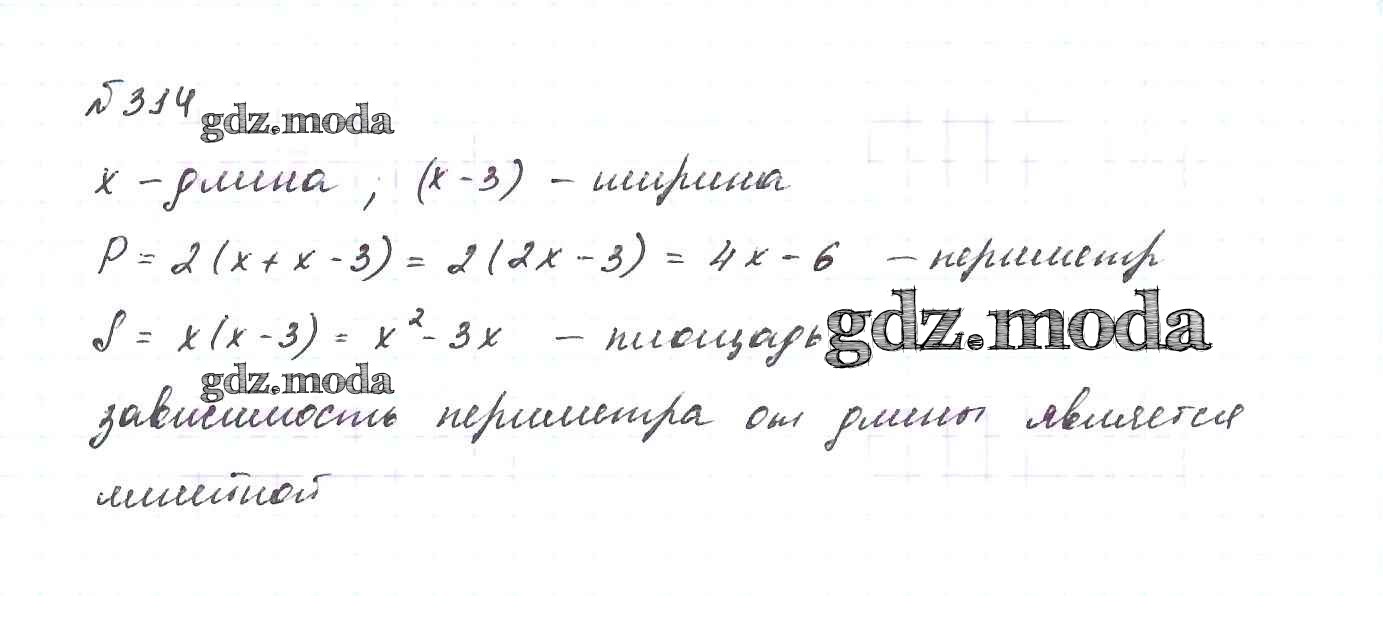 № 314
gdz.moda
x – длина, (x - 3) – ширина
P = 2(x + x - 3) = 2(2x - 3) = 4x - 6 – периметр
S = x(x - 3) = x² - 3x – площадь gdz.moda
gdz.moda
зависимость периметра от длины является
линейной